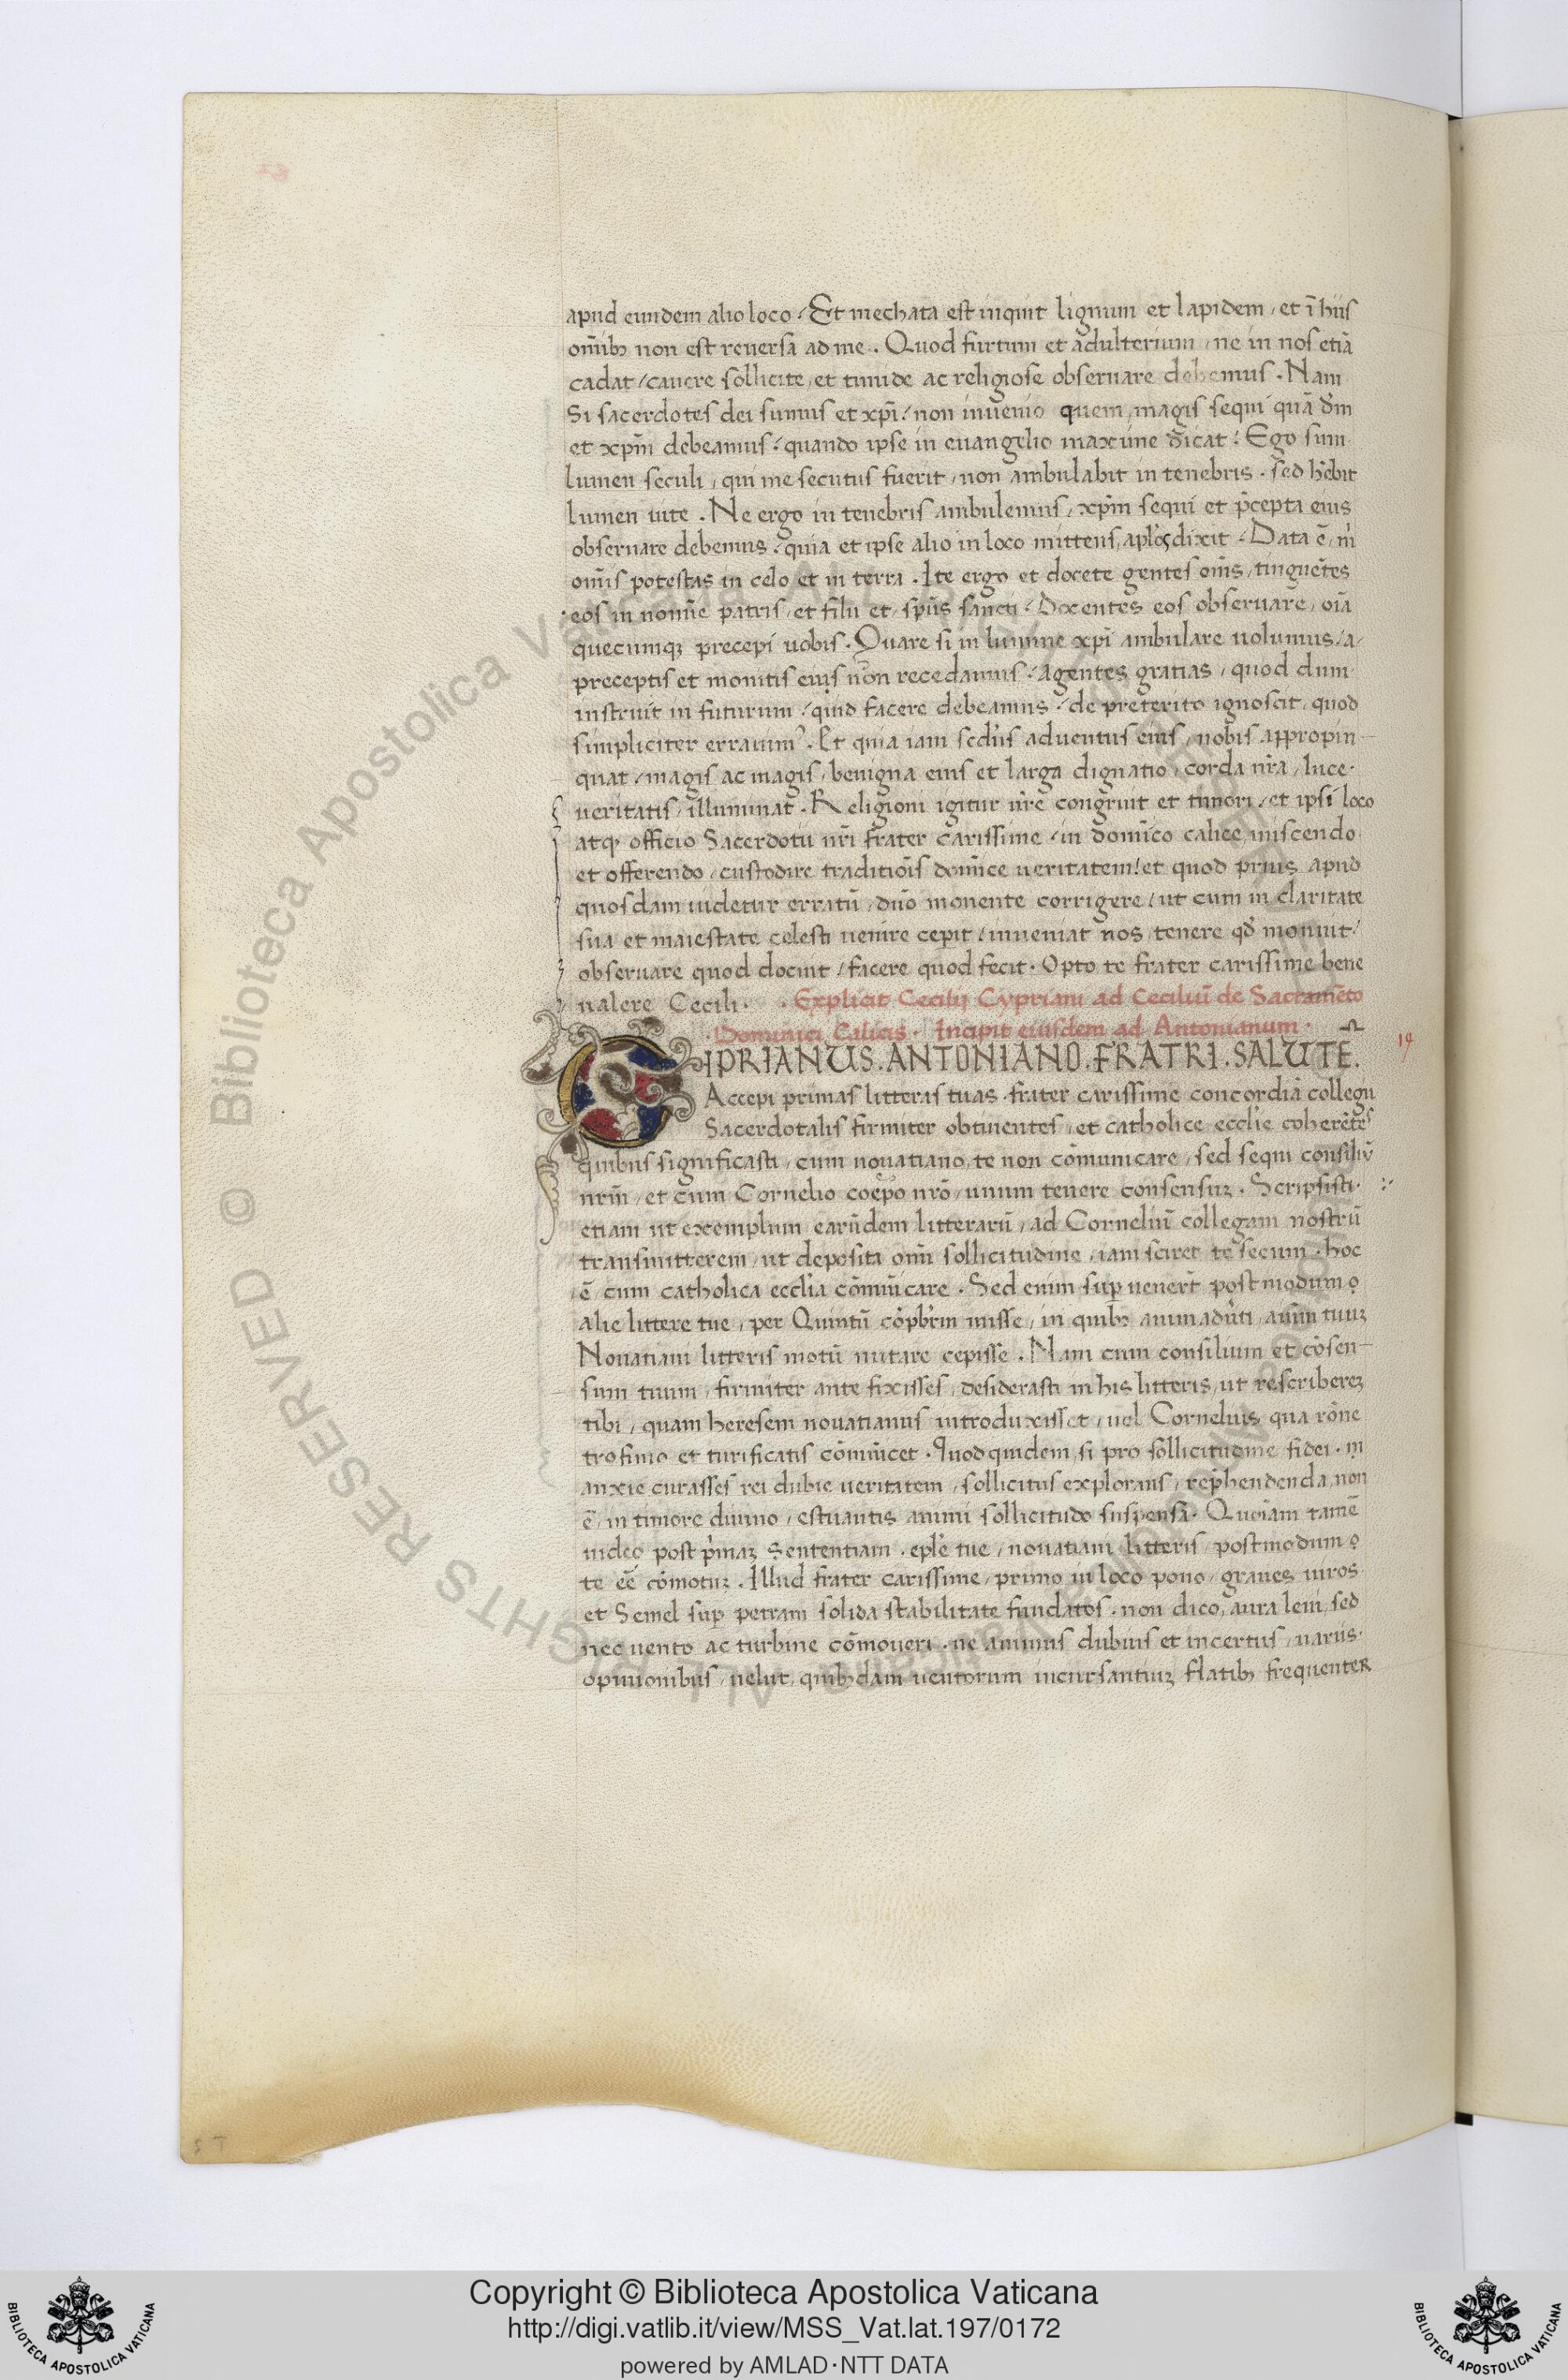 apud eundem alio loco / Et mechata est inquit lignum et lapidem / et ī hiis
om̄ibꝫ non est reuersa ad me . Quod furtum et adulterium / ne in nos etiā
cadat / cauere sollicite / et timide ac religiose obseruare debemus . Nam
Si sacerdotes dei sumus et xp̄i / non inuenio quem magis sequi quā d̄m
et xp̄m debeamus / quando ipse in euangelio maxime dicat / Ego sum
lumen seculi / qui me secutus fuerit / non ambulabit in tenebris . sed hēbit
lumen uite . Ne ergo in tenebris ambulemus / xp̄m sequi et p̄cepta eius
obseruare debemus / quia et ipse alio in loco mittens apl̄os dixit . Data ē m̄
om̄is potestas in celo et in terra . Ite ergo et docete gentes om̄s / tinguētes
eos in nomīe patris / et filii et sp̄us sancti / Docentes eos obseruare / oīa
quecumqꝫ precepi uobis . Quare si in lumine xp̄i ambulare uolumus / a /
preceptis et monitis eius non recedamus / agentes gratias / quod dum
instruit in futurum / quid facere debeamus / de preterito ignoscit / quod
simpliciter errauimꝰ . Et quia iam sedūs aduentus eius / nobis appropin-
quat / magis ac magis / benigna eius et larga dignatio / corda nr̄a / luce .
ueritatis / illuminat . Religioni igitur nr̄e congruit et timori / et ipsi loco
atqꝫ officio Sacerdotii nr̄i frater carissime / in domīco calice miscendo
et offerendo / custodire traditiōis domīce ueritatem / et quod prius apud
quosdam uidetur erratū / dn̄o monente corrigere / ut cum in claritate
sua et maiestate celesti uenire ceperit / inueniat nos tenere qd̄ monuit /
obseruare quod docuit / facere quod fecit . Opto te frater carissime bene
ualere Cecili . . Explicit Cecilii Cypriani ad Ceciliū de Sacramēto
. Dominici Calicis . Incipit eiusdem ad Antonianum .
CIPRIANUS . ANTONIANO . FRATRI . SALUTĒ . 19
Accepi primas litteras tuas . frater carissime concordiā collegii
Sacerdotalis firmiter obtinentes / et catholice eccl̄ie coherētes
quibus significasti / cum nouatiano te non cōmunicare / sed sequi consiliū
nr̄m / et cum Cornelio coep̄o nr̄o / unum tenere consensuꝫ . Scripsisti .
etiam ut exemplum earūdem litterarū / ad Corneliū collegam nostrū
transmitterem / ut deposita om̄i sollicitudine / iam sciret te secum . hoc
ē cum catholica eccl̄ia cōmūicare . Sed enim sup̄uenerūt postmodum
alie littere tue / per Quintū cōpbr̄m misse / in quibꝫ animadūti / aīum tuuꝫ
Nouatiani litteris motū nutare cepisse . Nam cum consilium et cōsen-
sum tuum / firmiter ante fixisses / desiderasti in his litteris / ut rescribereꝫ
tibi / quam heresem nouatianus introduxisset / uel Cornelius qua rōne
trofimo et turificatis cōmūicet . Quod quidem / si pro sollicitudine fidei . in
anxie curasses rei dubie ueritatem / sollicitus explorans / rep̄hendenda non
ē / in timore diuino / estuantis animi sollicitudo suspensa . Quoīam tamē
uideo post p̄maꝫ Sententiam . epl̄e tue / nouatiani litteris / postmodum
te eē cōmotuꝫ . Illud frater carissime / primo in loco pono / graues uiros
et Semel sup̄ petram solida stabilitate fundatos . non dico aura leui sed
nec uento ac turbine cōmoueri . ne animus dubius et incertus / uariis .
opinionibus / uelut quibꝫdam uentorum incursantiuꝫ flatibꝫ frequenter
Copyright © Biblioteca Apostolica Vaticana
http://digi.vatlib.it/view/MSS_Vat.lat.197/0172
powered by AMLAD·NTT DATA
BIBLIOTECA APOSTOLICA VATICANA
BIBLIOTECA APOSTOLICA VATICANA